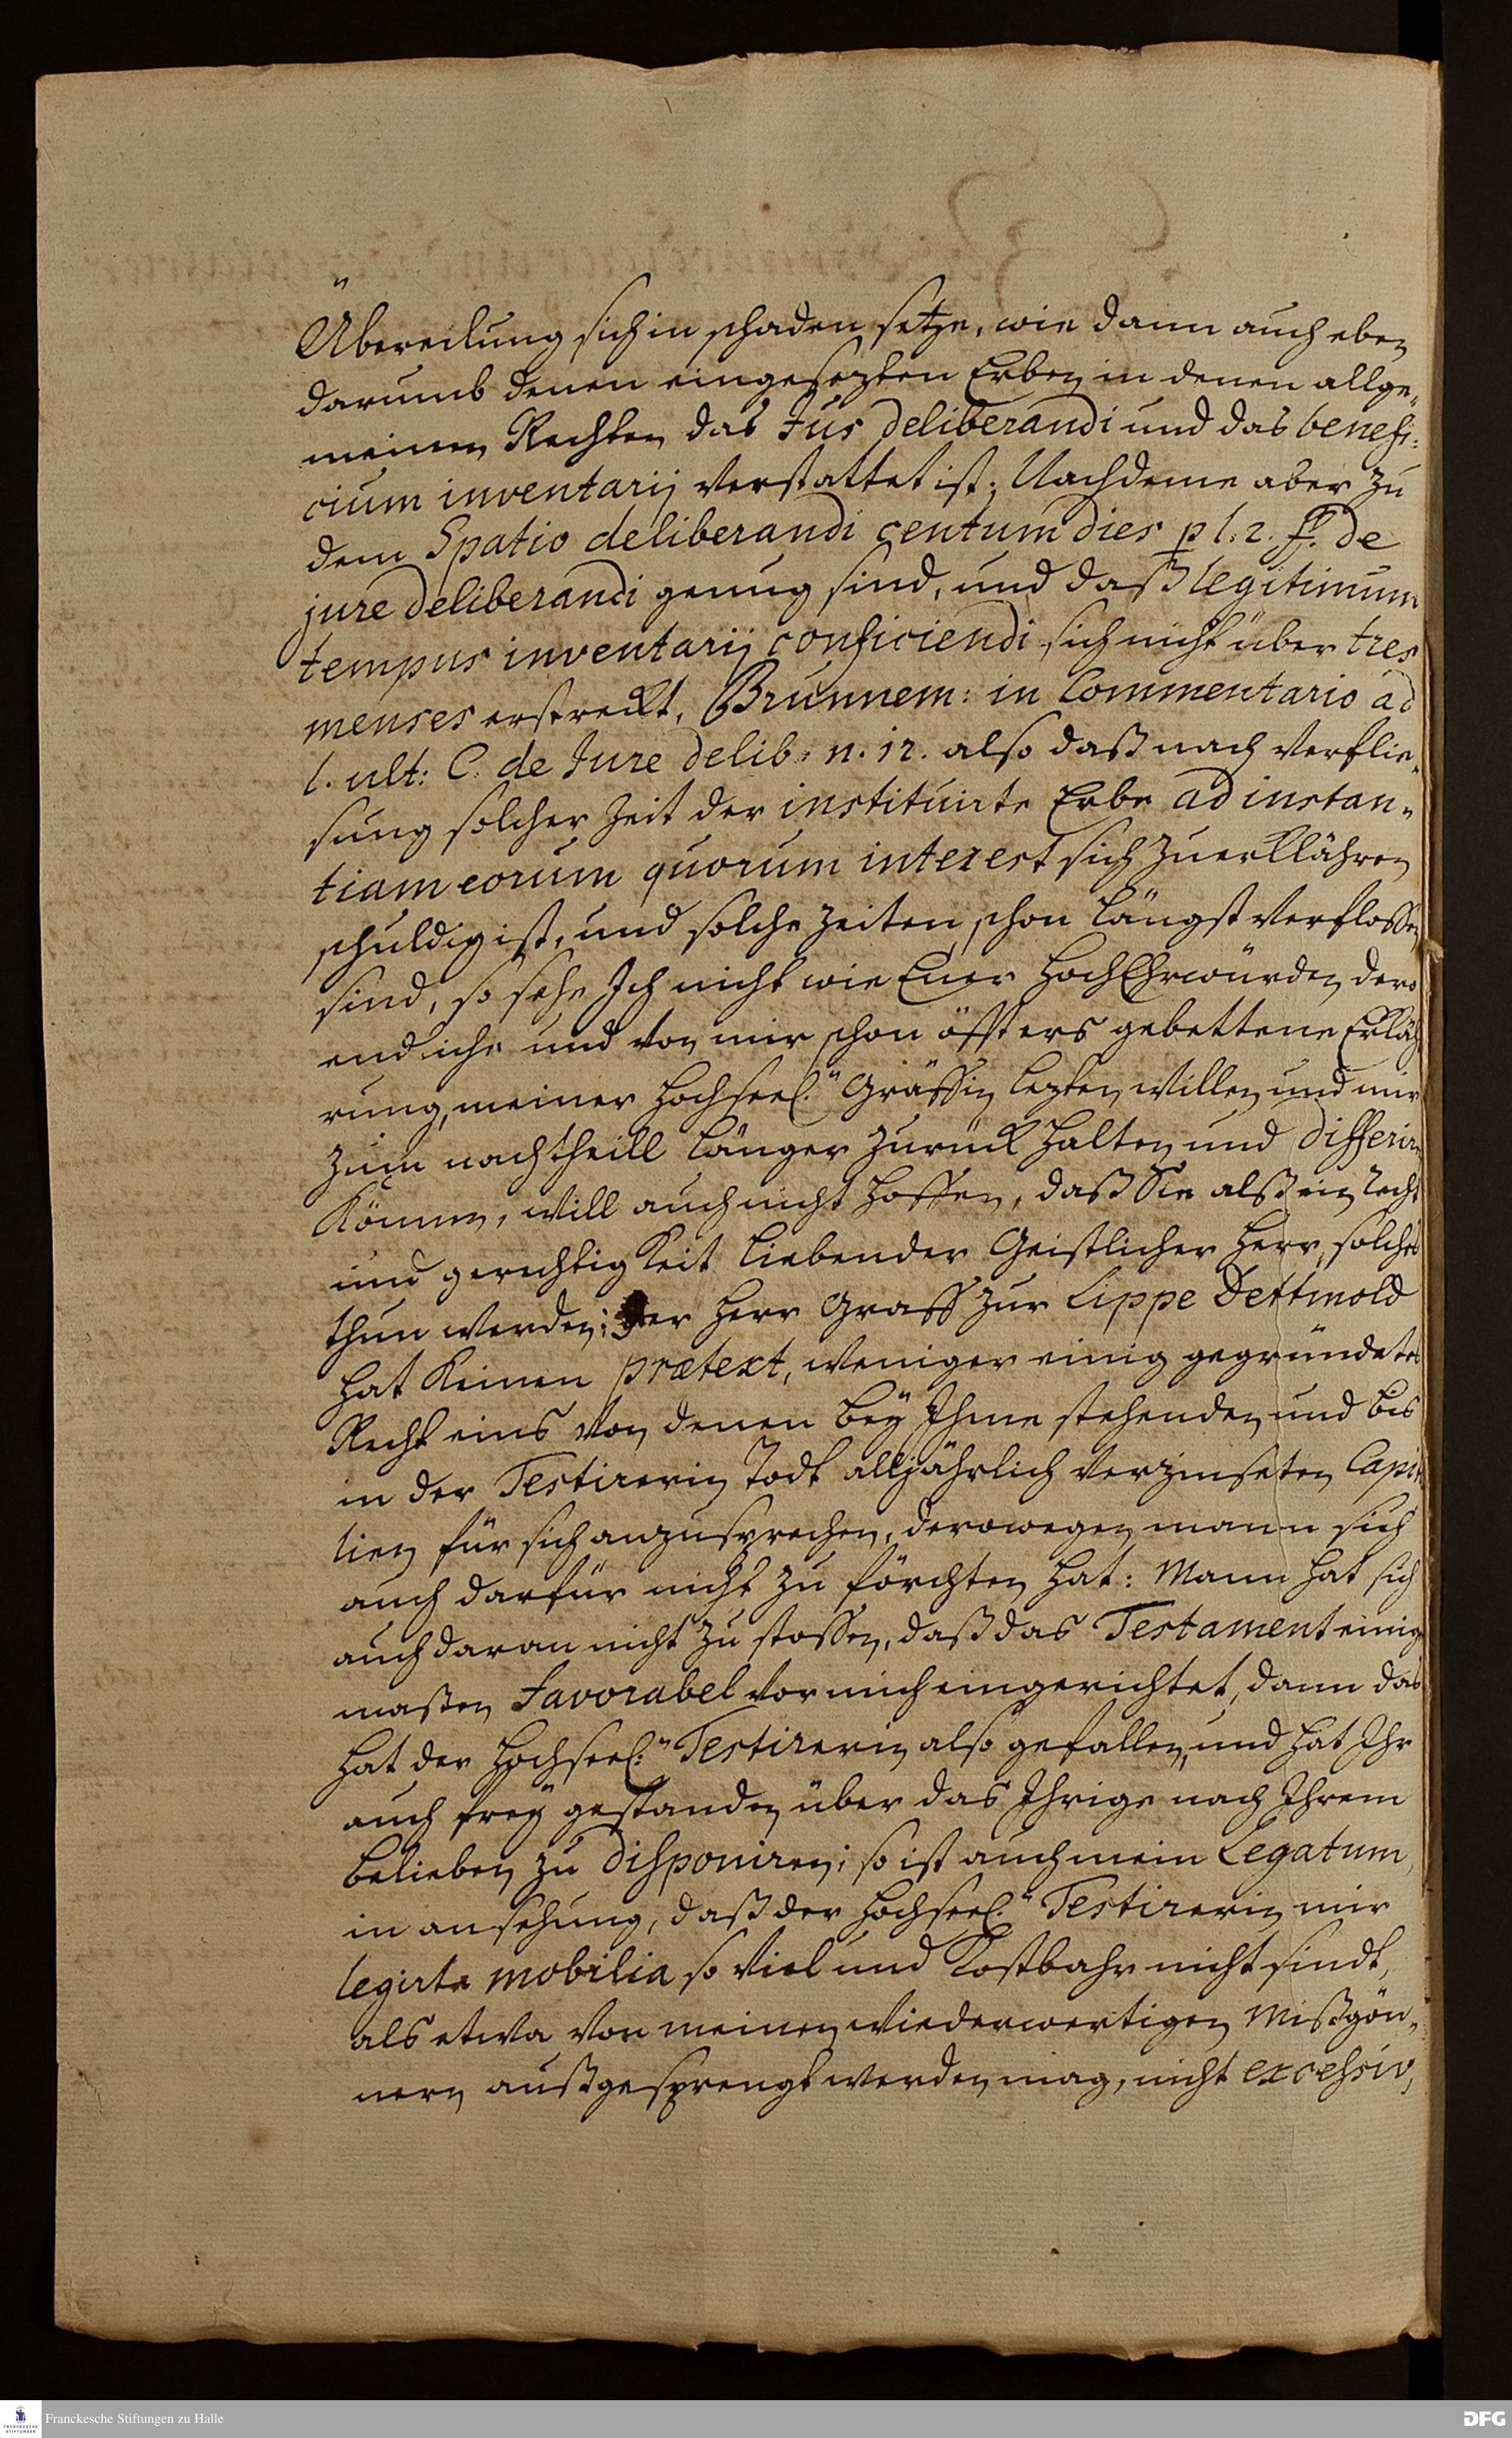 Übereilung sich in schaden setze, wie dann auch eben
darumb denen eingesezten Erben in denen allge„
meinen Rechten das Jus deliberandi und das benefi:
cium inventarij verstattet ist; Nachdeme aber zu
dem Spatio deliberandi centum dies p l. 2. ff. de
jure deliberandi genug sind, und daß legitimum
tempus inventarij conficiendi sich nicht über tres
menses erstreckt, Brunnem: in Commentario ad
l. ult: C. de Jure delib: n. 12. also daß nach verflie„
sung solcher Zeit der instituirte Erbe ad instan„
tiam eorum quorum interest sich zuerklähren
schuldig ist, und solche Zeiten schon längst verflossen
sind, so sehe Ich nicht wie Euer HochEhrwürden dero
endliche und von mir schon öffters gebettene Erläh
rung, meiner Hochseel. Gräffin lezten Willen und mir
zum nachtheill länger zurück halten und differirn
können, will auch nicht hoffen, daß Sie alß ein recht
und gerechtigkeit liebender Geistlicher Herr, solches
thun werden; der Herr Graff zur Lippe Dettmold
hat keinen prætext, weniger einig gegründetes
Recht eins von denen bey Ihme stehenden und bis
in der Testirerin Todt alljährlich verzinseten Capit
lien für sich anzusprechen, derowegen mann sich
auch darfür nicht zu förchten hat: Mann hat sich
auch daran nicht zu stossen, daß das Testament einig
maßen favorabel vor mich eingerichtet, dann das
hat der Hochseel: Testirerin also gefallen, und hat Ihr
auch frey gestanden über das Ihrige nach Ihrem
belieben zu disponiren; so ist auch mein Legatum,
in ansehung, daß der Hochseel. Testirerin mir
legirte mobilia so viel und kostbahr nicht sindt,
als etwa von meinen wiederwertigen Mißgön„
nern außgesprengt werden mag, nicht excessiv,
Franckesche Stiftungen zu Halle
FRANCKESCHE STIFTUNGEN
DFG